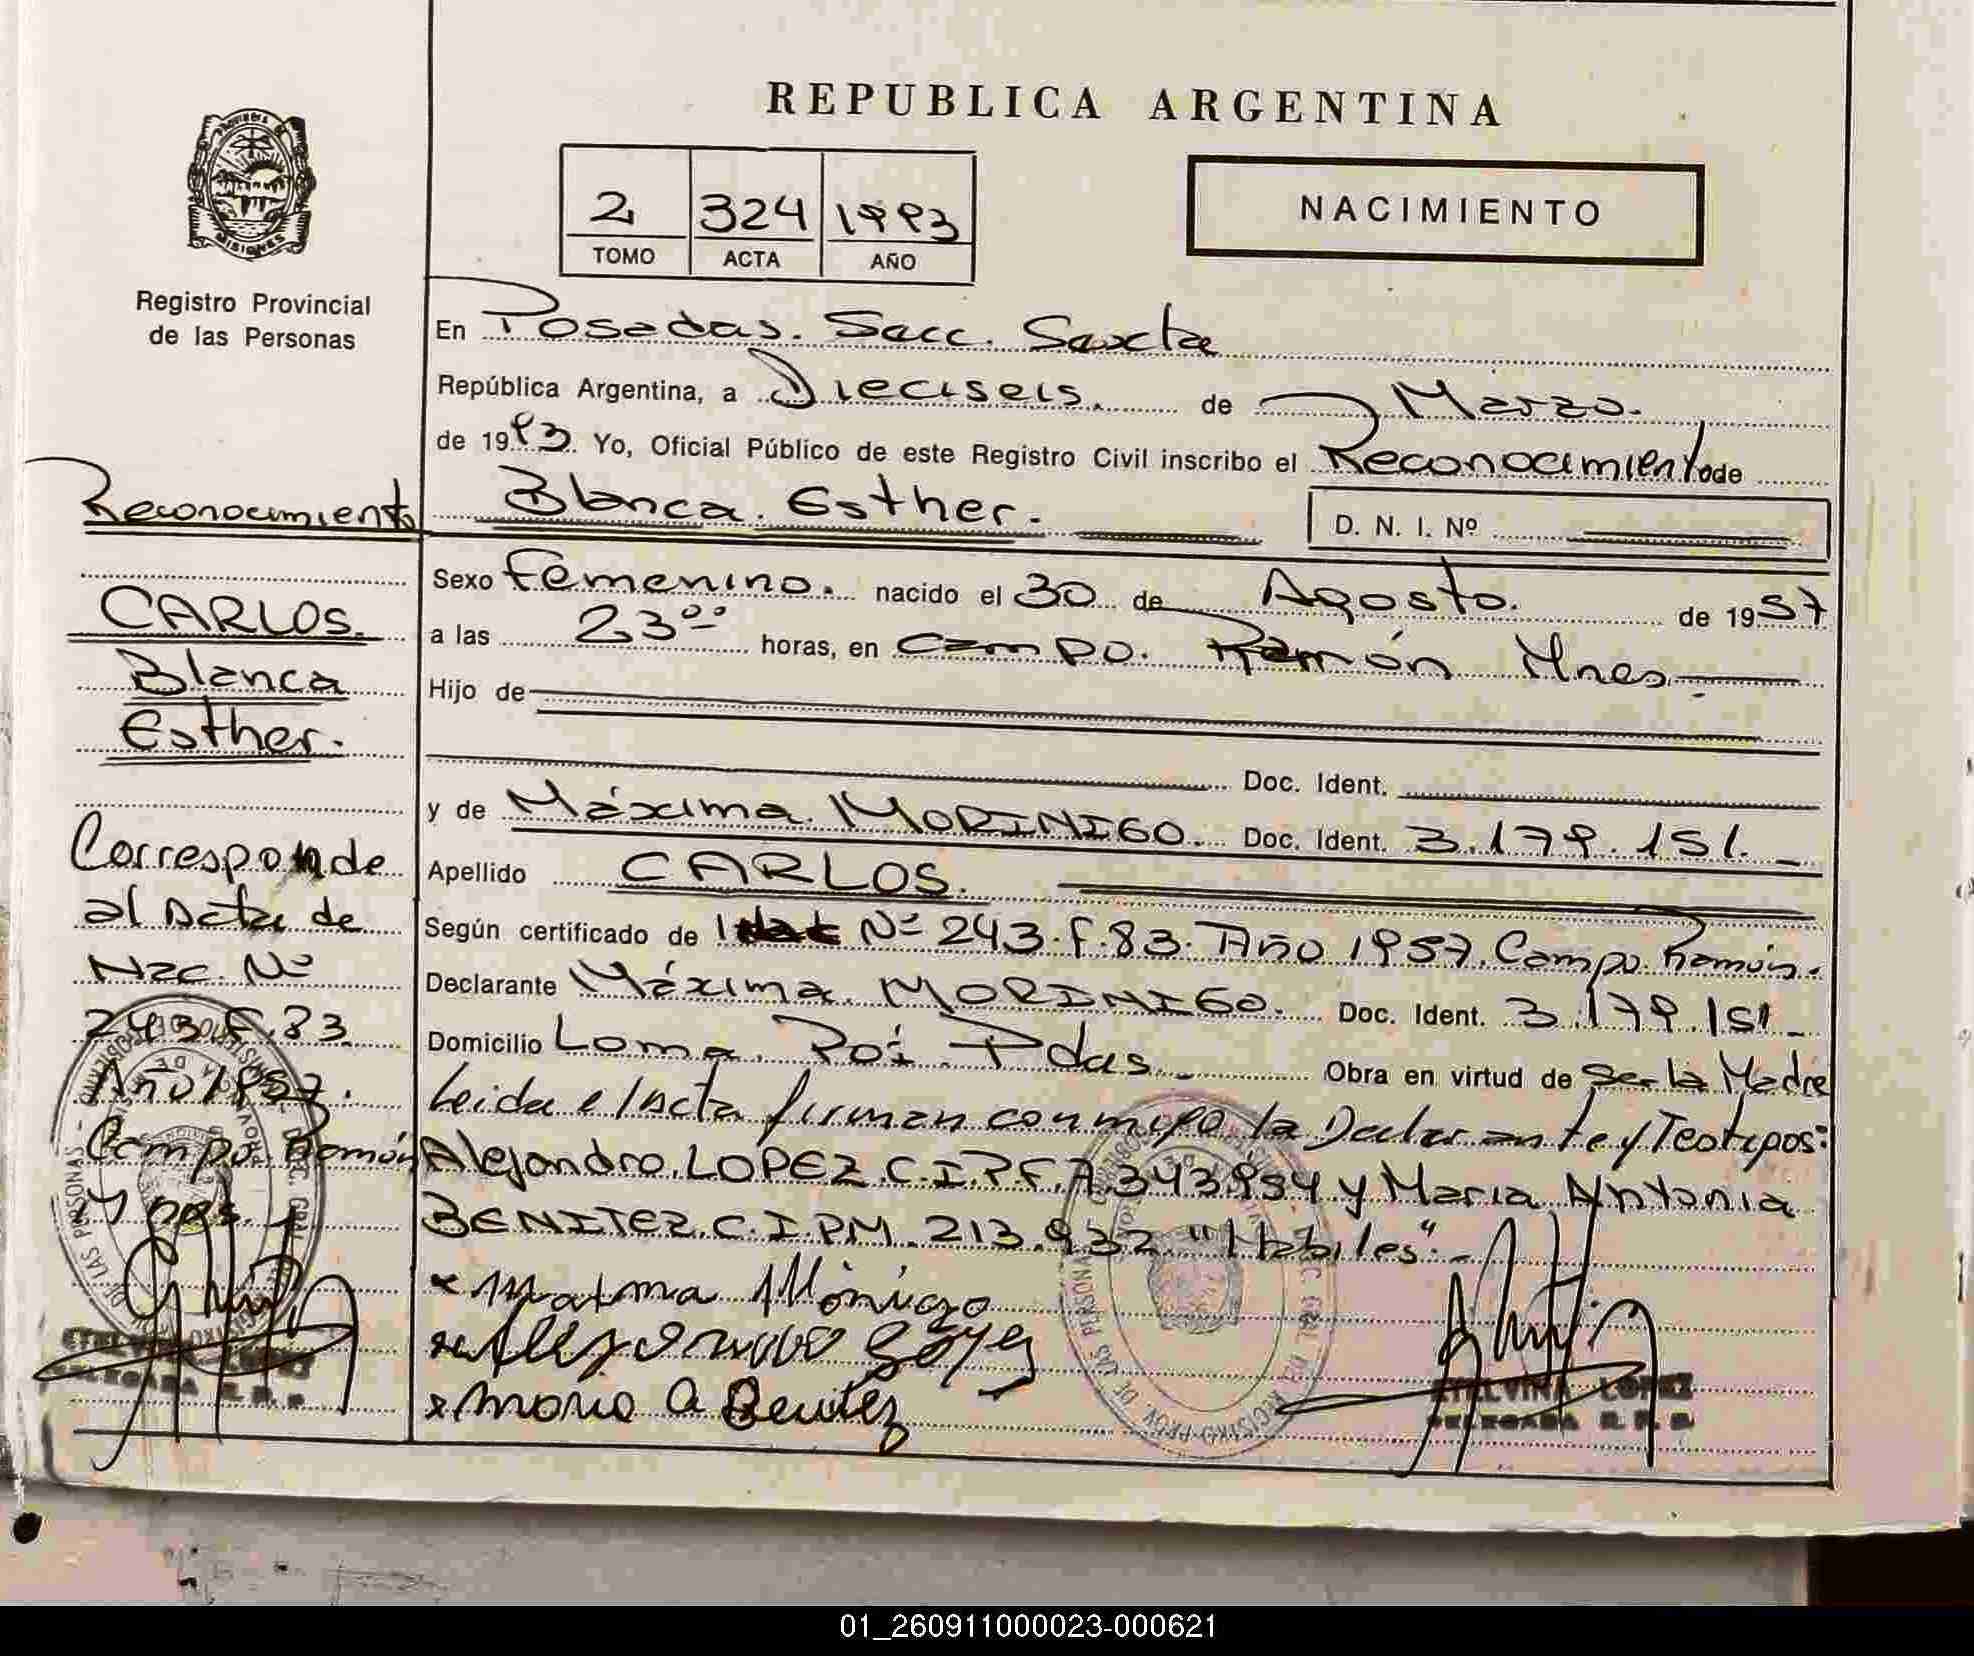 REPUBLICA ARGENTINA
PROVINCIA DE
MISIONES
Registro Provincial
de las Personas
2 324 1993
TOMO ACTA AÑO
NACIMIENTO
En Posadas. Secc. Sexta
República Argentina, a Dieciseis. de Marzo.
de 1993. Yo, Oficial Público de este Registro Civil inscribo el Reconocimiento de
Blanca. Esther.
D. N. I. Nº
Sexo Femenino. nacido el 30 de Agosto. de 1957
a las 23 oo horas, en Campo. Ramón Mnes.
Hijo de
Doc. Ident.
y de Máxima. MORINIGO. Doc. Ident. 3.179.151.
Apellido CARLOS.
Según certificado de Nº 243. F. 83. Año 1957. Campo Ramón.
Declarante Máxima. MORINIGO. Doc. Ident. 3.179.151
Domicilio Loma. Poi. Pdas. Obra en virtud de Ser la Madre
Leida el Acta firman conmigo la Declarante y Testigos:
Alejandro. LOPEZ. C.I.P.F. 7.343.954 y Maria Antonia
BENITEZ. C.I.P.M. 213.932 "Habiles".
x Alejandro
x Maria A Benitez
ETELVINA LOPEZ
DELEGADA R. P. P.
Reconocimiento
CARLOS.
Blanca
Esther.
Corresponde
al Acta de
Nac. Nº
243 F. 83
Año 1957.
Campo Ramón
Mnes.
ETELVINA LOPEZ
DELEGADA R. P. P.
01_260911000023-000621